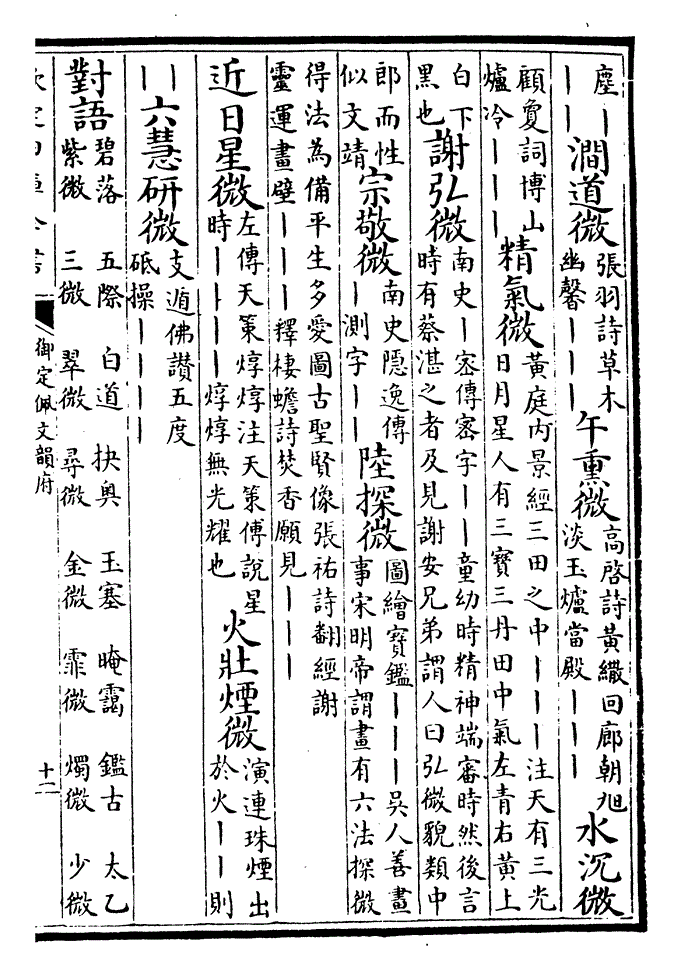 塵｜
｜｜｜
澗道微
張羽詩草木
幽馨｜｜｜
午熏微
高啓詩黃繖回廊朝旭
淡玉爐當殿｜｜｜
水沉微
顧敻詞博山
爐冷｜｜｜
精氣微
黃庭内景經三田之中｜｜｜注天有三光
日月星人有三寳三丹田中氣左青右黃上
白下
黑也
謝弘微
南史｜宻傳宻字｜｜童幼時精神端審時然後言
時有蔡湛之者及見謝安兄弟謂人曰弘微貌類中
郎而性
似文靖
宗敬微
南史隱逸傳
｜測字｜｜
陸探微
圖繪寳鑑｜｜｜吳人善畫
事宋明帝謂畫有六法探微
得法為備平生多愛圖古聖賢像張祐詩翻經謝
靈運畫壁｜｜｜釋棲蟾詩焚香願見｜｜｜
近日星微
左傳天策焞焞注天策傅說星
時｜｜｜｜焞焞無光耀也
火壯煙微
演連珠煙出
於火｜｜則
｜｜
六慧研微
支遁佛讃五度
砥操｜｜｜｜
對語
碧落 五際 白道 抉奥 玉塞 晻靄 鑑古 太乙
紫微 三微 翠微 尋微 金微 霏微 燭微 少微
欽定四庫全書
御定佩文韻府
十二